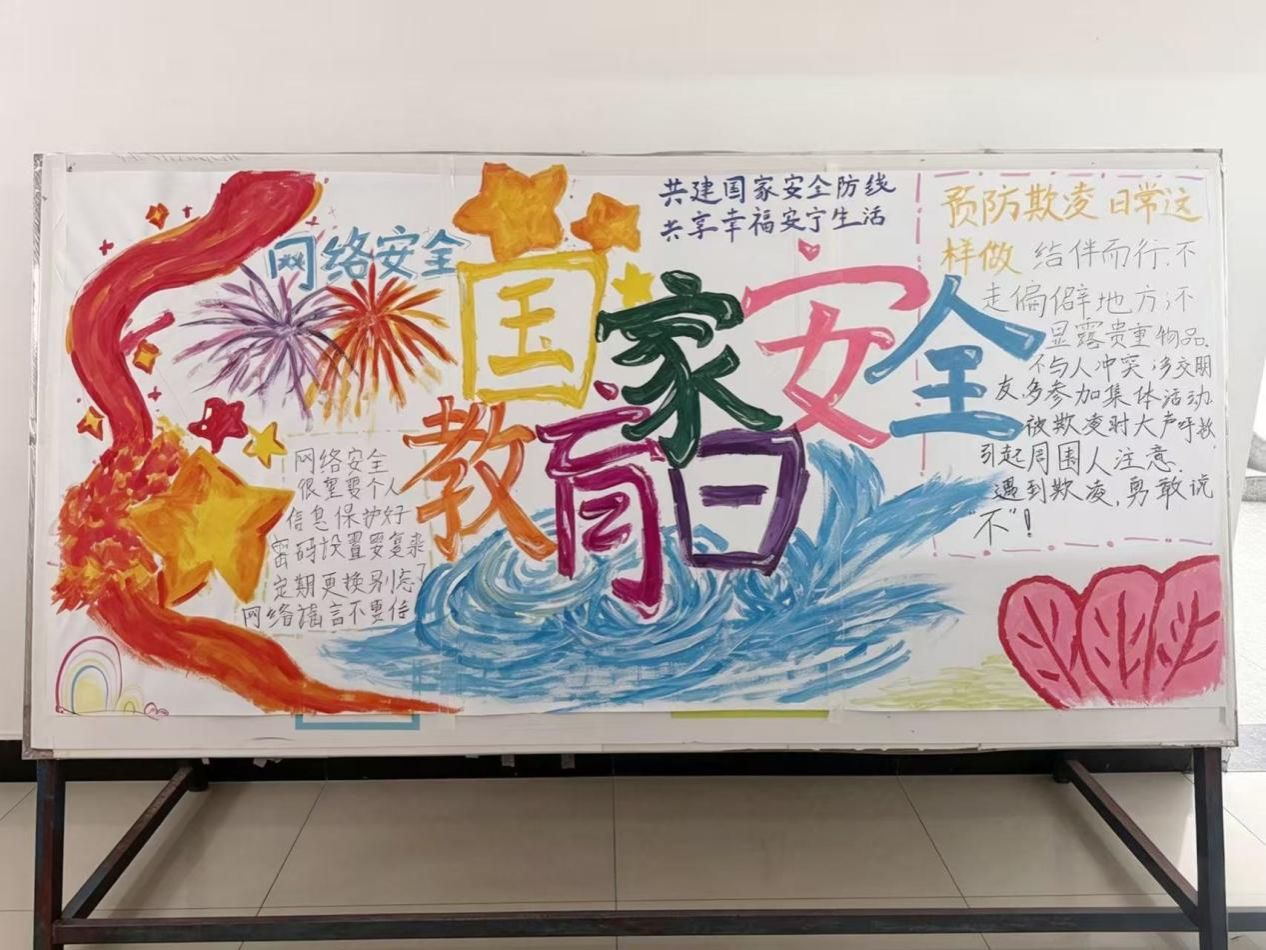 共建国家安全防线
共享幸福安宁生活
网络安全
国家安全
教育日
网络安全
很重要个人
信息保护好
密码设置要复杂
定期更换别忘了
网络谣言不要信
预防欺凌日常这
样做 结伴而行.不
走偏僻地方不
显露贵重物品.
不与人冲突 多交朋
友多参加集体活动
被欺凌时大声呼救
引起周围人注意.
遇到欺凌,勇敢说
“不”!